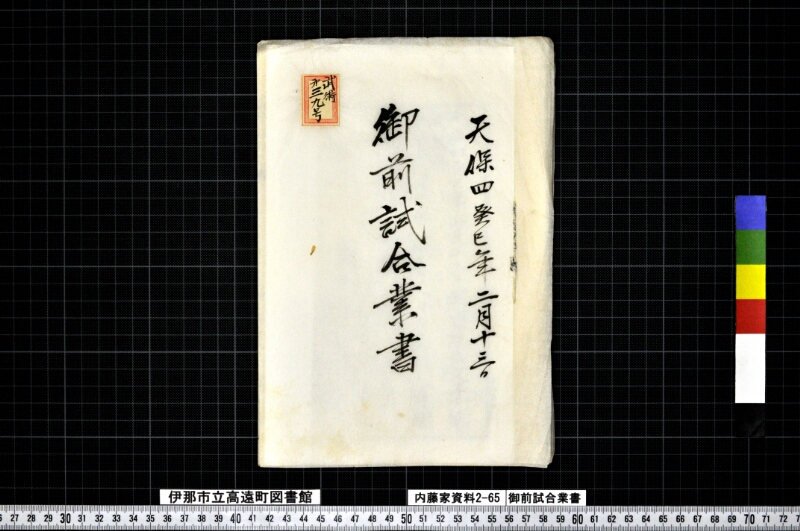 天保四癸巳年二月十三日
御前試合業書
武術
第三一九号
伊那市立高遠町図書館
内藤家資料2-65
御前試合業書
27 28 29 30 31 32 33 34 35 36 37 38 39 40 41 42 43 44 45 46 47 48 49 50 51 52 53 54 55 56 57 58 59 60 61 62 63 64 65 66 67 68 69 70 71 72